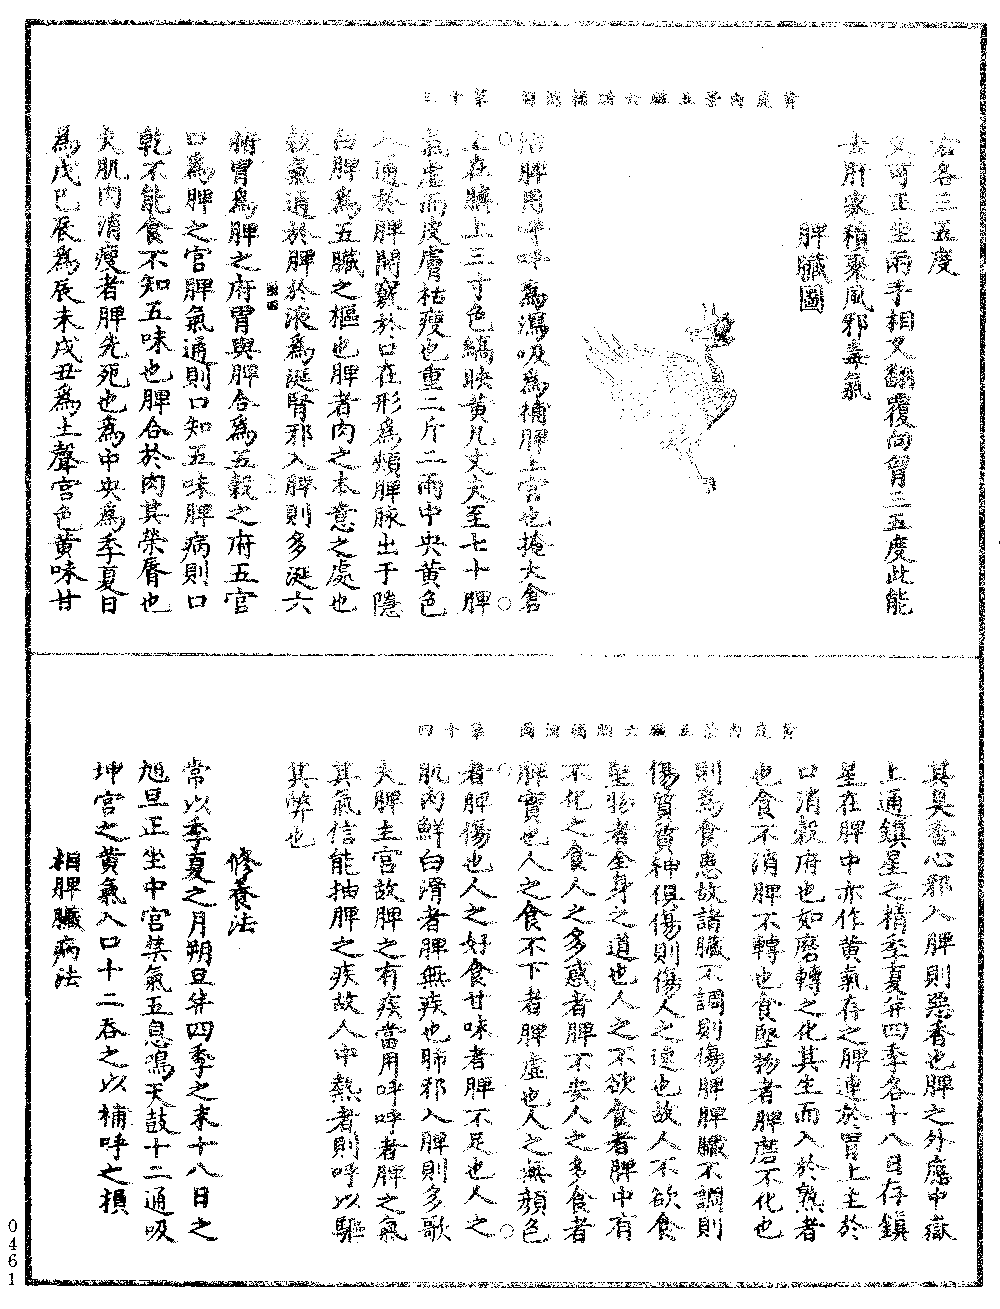 右各三五度
又可正坐兩手相叉翻覆向胷三五度此能
去肝家積聚風邪毒氣
脾臟圖
黃庭內景五臟六腑補瀉圖 第十三
治脾用呼呼為瀉吸為補脾土宮也掩太倉
上在臍上三寸色縞映黃凡丈夫至七十脾
氣虛而皮膚枯瘦也重二斤二兩中央黃色
入通於脾開竅於口在形為頰脾脉出于隱
白脾為五臟之樞也脾者肉之本意之處也
穀氣通於脾於液為涎腎邪入脾則多涎六
腑胃為脾之府胃與脾合為五穀之府五官
口為脾之官脾氣通則口知五味脾病則口
乾不能食不知五味也脾合於肉其榮唇也
夫肌肉消瘦者脾先死也為中央為季夏日
為戊己辰為辰未戌丑為土聲宮色黃味甘
黃庭內景五臟六腑補瀉圖 第十四
其臭香心邪入脾則惡香也脾之外應中嶽
上通鎮星之精季夏并四季各十八日存鎮
星在脾中亦作黃氣存之脾連於胃上主於
口消穀府也如磨轉之化其生而入於熟者
也食不消脾不轉也食堅物者脾磨不化也
則為食患故諸臟不調則傷脾脾臟不調則
傷質質神俱傷則傷人之速也故人不欲食
堅物者全身之道也人之不欲食者脾中有
不化之食人之多惑者脾不安人之多食者
脾實也人之食不下者脾虛也人之無顏色
者脾傷也人之好食甘味者脾不足也人之
肌肉鮮白滑者脾無疾也肺邪入脾則多歌
夫脾主宮故脾之有疾當用呼呼者脾之氣
其氣信能抽脾之疾故人中熱者則呼以驅
其弊也
修養法
常以季夏之月朔旦并四季之末十八日之
旭旦正坐中宮禁氣五息鳴天鼓十二通吸
坤宮之黃氣入口十二吞之以補呼之損
相脾臟病法
0461